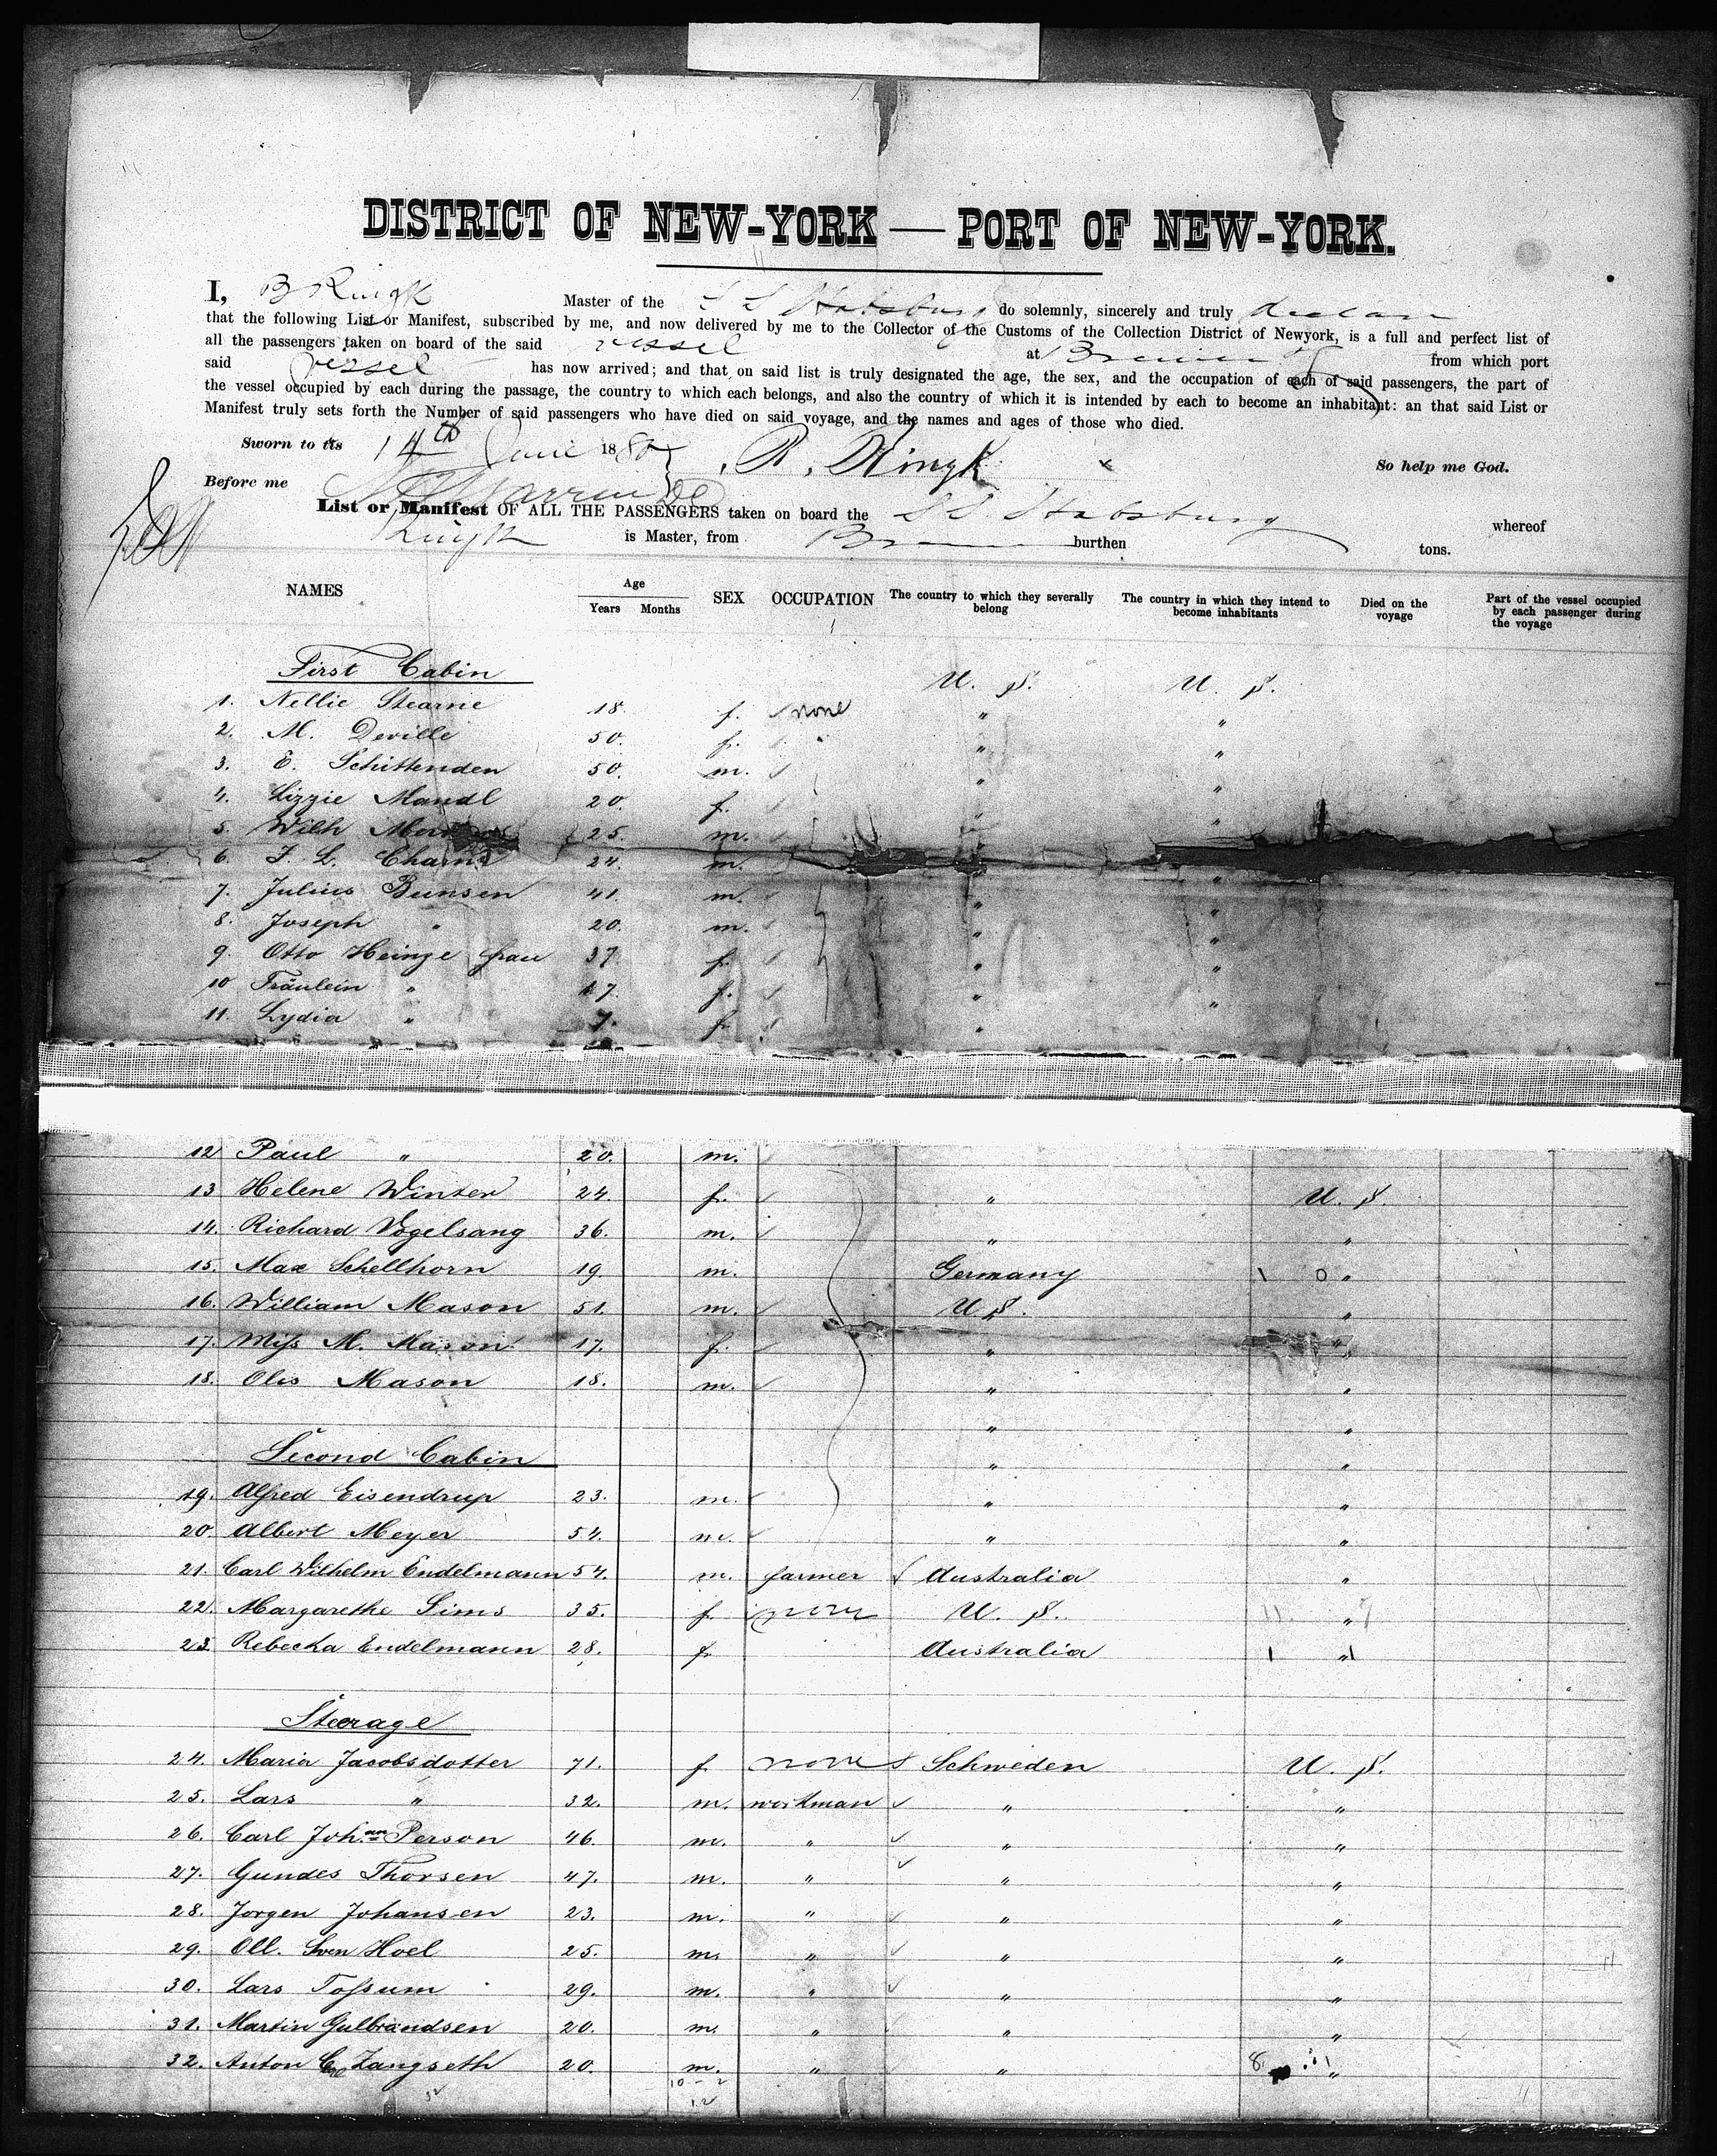 DISTRICT OF NEW-YORK — PORT OF NEW-YORK.
I, B Ringk Master of the S S Habsburg do solemnly, sincerely and truly declare
that the following List or Manifest, subscribed by me, and now delivered by me to the Collector of the Customs of the Collection District of Newyork, is a full and perfect list of
all the passengers taken on board of the said vessel at Bremen from which port
said vessel has now arrived; and that on said list is truly designated the age, the sex, and the occupation of each of said passengers, the part of
the vessel occupied by each during the passage, the country to which each belongs, and also the country of which it is intended by each to become an inhabitant: an that said List or
Manifest truly sets forth the Number of said passengers who have died on said voyage, and the names and ages of those who died.
Sworn to tis 14th June 1880 B. Ringk x So help me God.
Before me
List or Manifest OF ALL THE PASSENGERS taken on board the S S Habsburg whereof
Ringk is Master, from Bremen burthen tons.
NAMES Age Years Months SEX OCCUPATION The country to which they severally belong The country in which they intend to become inhabitants Died on the voyage Part of the vessel occupied by each passenger during the voyage
First Cabin U. S. U. S.
1. Nellie Stearne 18. f. none " "
2. M. Deville 50. f. " "
3. E. Schittenden 50. m. " "
4. Lizzie Mandl 20. f. " "
5. Wilh 25. m.
6. F. L. 24. m. "
7. Julius Bunsen 41. m. " "
8. Joseph " 20. m. " "
9. Otto Heinze frau 37 f. " "
10 Fräulein " 17. f. " "
11. Lydia " 7. f. "
12 Paul " 20. m.
13 Helene Winter 24. f. " U. S.
14. Richard Vogelsang 36. m. " "
15. Max Schellhorn 19. m. Germany 1 0 "
16. William Mason 51. m. U. S. "
17. Miss M. Mason 17. f. " "
18. Olis Mason 18. m. " "
" "
Second Cabin " "
19. Alfred Eisendrup 23. m. " "
20. Albert Meyer 54. m. " "
21. Carl Wilhelm Endelmann 54. m. farmer Australia "
22. Margarethe Sims 35. f. none U. S. "
23. Rebecka Endelmann 28. f. Australia 1 "1
Steerage
24. Maria Jacobsdotter 71. f. none Schweden U. S.
25. Lars " 32. m. workman " "
26. Carl Johann Person 46. m. " " "
27. Gundes Thorsen 47. m. " " "
28. Jorgen Johansen 23. m. " " "
29. Oll. Sven Hoel 25. m. " " "
30. Lars Tossum 29. m. " " "
31. Martin Gulbrandsen 20. m. " " "
32. Anton Langseth 20. m. " " 8 "
10 - 2
12